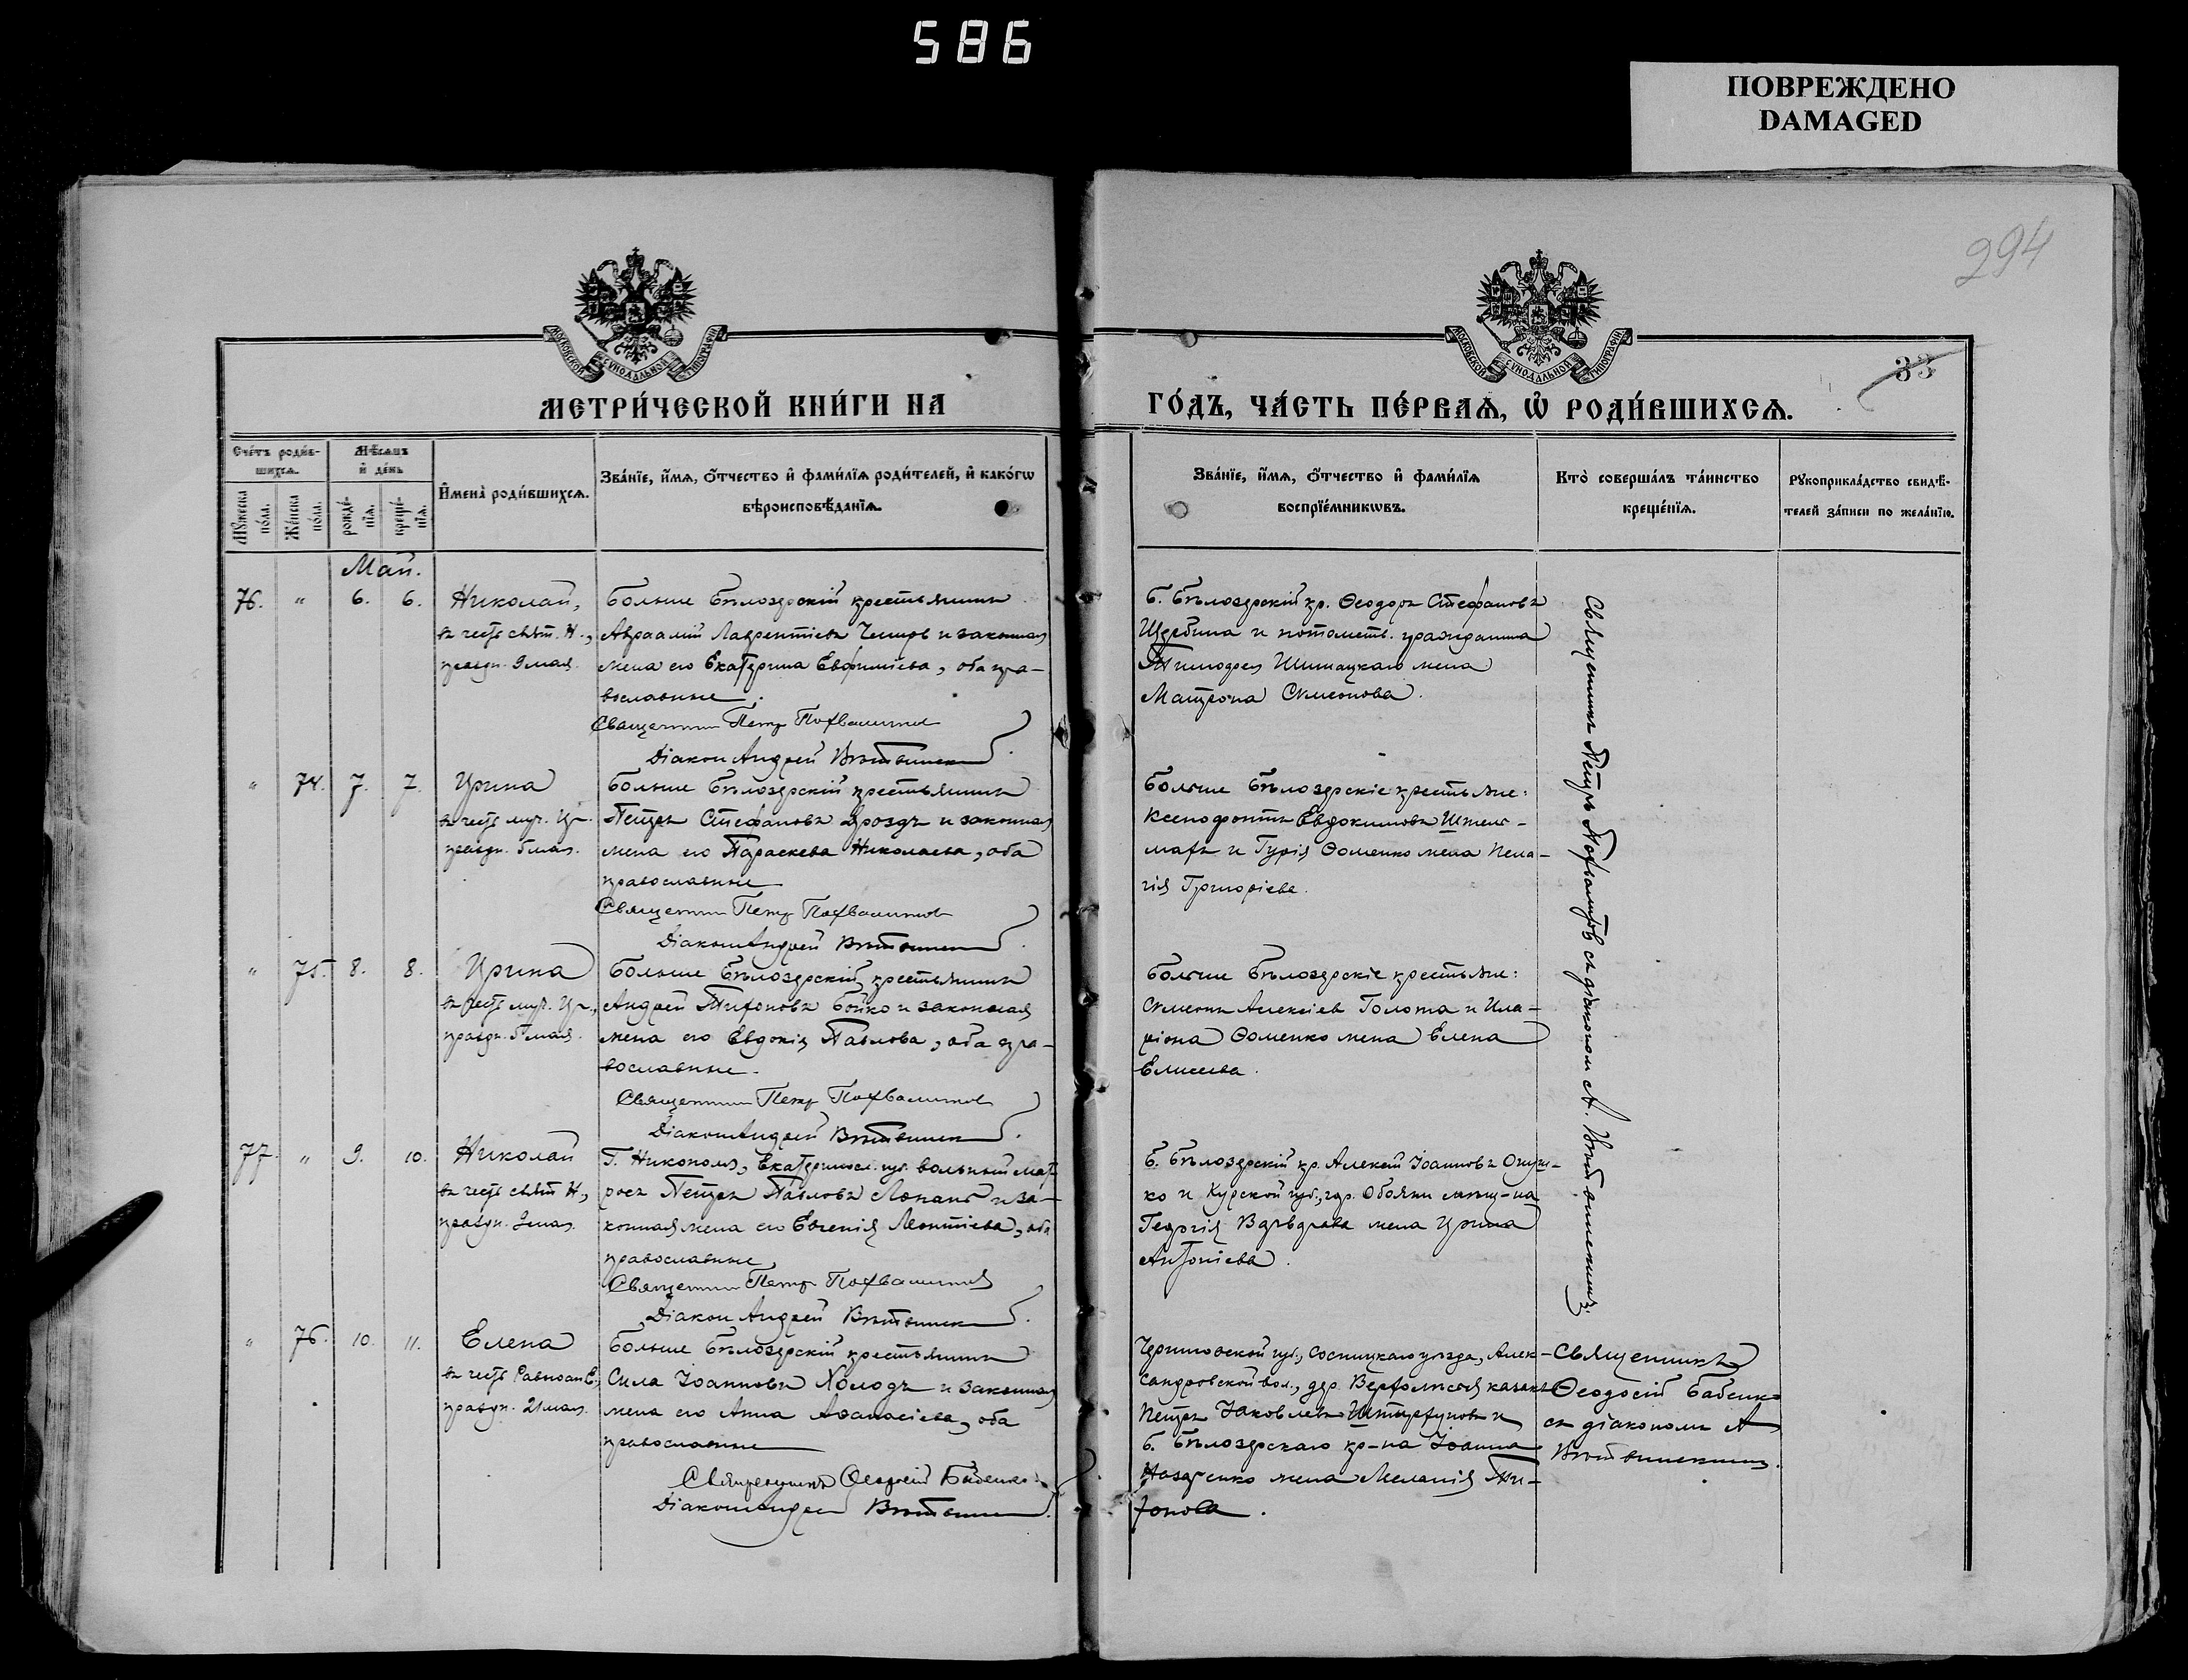 586
ПОВРЕЖДЕНО
DAMAGED
294
33
МОСКОВСКОЙ СѴНОДАЛЬНОЙ ТИПОГРАФІИ
МОСКОВСКОЙ СѴНОДАЛЬНОЙ ТИПОГРАФІИ
МЕТРИ́ЧЕСКОЙ КНИ́ГИ НА
ГО́ДЪ, ЧА́СТЬ ПЕ́РВАѦ, Ѡ҆ РОДИ́ВШИХСѦ.
Сче́тъ роди́в-
шихсѧ.
Мѣ́сѧцъ
и҆ де́нь
Мꙋ́жеска по́ла.
Же́нска по́ла.
рожде́-
нїѧ.
креще́-
нїѧ.
И҆мена̀ роди́вшихсѧ.
Зва́нїе, и҆́мѧ, ѻ҆́тчество и҆ фами́лїѧ роди́телей, и҆ како́гѡ
вѣроисповѣ́данїѧ.
Зва́нїе, и҆́мѧ, ѻ҆́тчество и҆ фами́лїѧ
воспрїе́мникѡвъ.
Кто̀ соверша́лъ та́инство
креще́нїѧ.
Рꙋкоприкла́дство свидѣ́-
телей за́писи по жела́нїю.
Май.
76. " 6. 6. Николай,
въ честь свят. Н.,
праздн. 9 мая.
Больше Бѣлозерскій крестьянинъ
Авраамій Лаврентіевъ и законная
жена его Екатерина Евфиміева, оба пра-
вославные.
Священникъ Петръ Похвалитовъ
Діаконъ Андрей
Б. Бѣлозерскій кр. Ѳеодоръ Стефановъ
Щербина и потомств. гражданина
Тимоѳея Шишацкаго жена
Матрона Симеонова.
" 74. 7. 7. Ирина
въ честь муч. Ир.
праздн. 5 мая.
Больше Бѣлозерскій крестьянинъ
Петръ Стефановъ Дроздъ и законная
жена его Параскева Николаева, оба
православные
Священникъ Петръ Похвалитовъ
Діаконъ Андрей
Больше Бѣлозерскіе крестьяне:
Ксенофонтъ Евдокимовъ Штель-
махъ и Гурія Ѳоменко жена Пела-
гія Григоріева.
" 75. 8. 8. Ирина
въ честь муч. Ир.,
праздн. 5 мая.
Больше Бѣлозерскій крестьянинъ
Андрей Тихоновъ Бойко и законная
жена его Евдокія Павлова, оба пра-
вославные.
Священникъ Петръ Похвалитовъ
Діаконъ Андрей
Больше Бѣлозерскіе крестьяне:
Симеонъ Алексіевъ Голота и Ила-
ріона Ѳоменко жена Елена
Елисеева.
77. " 9. 10. Николай
въ честь свят. Н.,
праздн. 9 мая.
Г. Никополя, Екатериносл. губ. вольный мат-
росъ Петръ Павловъ и за-
конная жена его Евгенія Леонтіева, оба
православные
Священникъ Петръ Похвалитовъ
Діаконъ Андрей
Б. Бѣлозерскій кр. Алексій Іоанновъ
ко и Курской губ., гор. Обояни мѣщ-на
Георгія жена Ирина
Антоніева.
" 76. 10. 11. Елена
въ честь Равноап. Е.,
праздн. 21 мая.
Больше Бѣлозерскій крестьянинъ
Сила Іоанновъ Холодъ и законная
жена его Анна Аѳанасіева, оба
православные
Священникъ Ѳеодосій Бабенко
Діаконъ Андрей
Черниговской губ., Сосницкаго уѣзда, Алек-
сандровской вол., дер. казакъ
Петръ Іаковлевъ и
Б. Бѣлозерскаго кр-на Іоанна
Назаренко жена Меланія Ти-
хонова.
Священникъ Петръ Похвалитовъ съ діакономъ А.
Священникъ
Ѳеодосій Бабенко
съ діакономъ А.